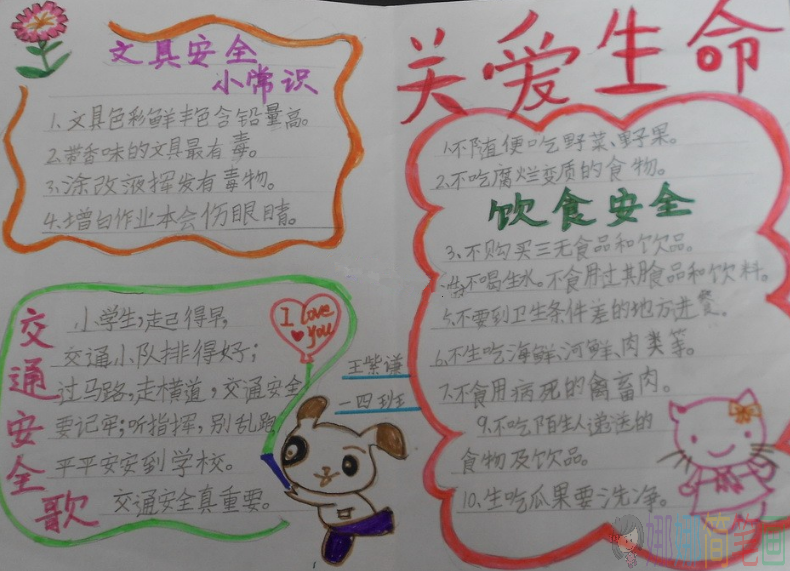 关爱生命
文具安全
小常识
1.文具色彩鲜丰色含铅量高。
2.带香味的文具最有毒。
3.涂改液挥发有毒物。
4.增白作业本会伤眼睛。
交通安全歌
小学生,走已得早,
交通小队排得好;
过马路,走横道,交通安全
要记牢;听指挥,别乱跑
平平安安到学校。
交通安全真重要。
I Love
you
王紫谦
一四班
1.不随便吃野菜、野果。
2.不吃腐烂变质的食物。
饮食安全
3.不购买三无食品和饮品。
不喝生水。不食用过期食品和饮料。
5.不要到卫生条件差的地方进餐。
6.不生吃海鲜、河鲜、肉类等。
7.不食用病死的禽畜肉。
9.不吃陌生人递送的
食物及饮品。
10.生吃瓜果要洗净。
娜娜简笔画